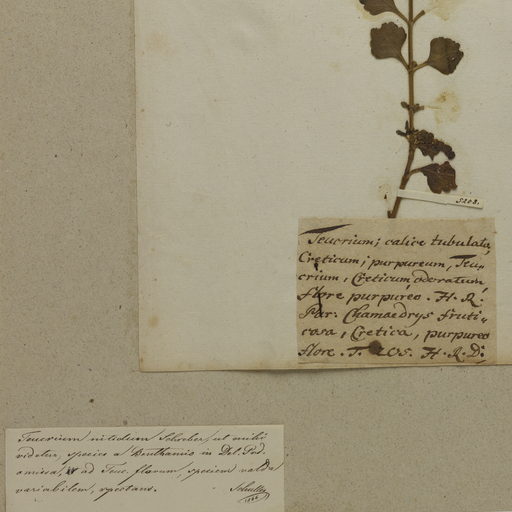 5208.
Teucrium; calice tubulato,
Creticum; purpureum, Teu-
crium, Creticum, odoratum,
flore purpureo. H. R.
Par: Chamaedrys fruti-
cosa, Cretica, purpureo
flore. T. 205. H. R. D:
Teucrium nitidum Schreber, ut mihi
videtur, species a Benthamio in Del. Pod.
omissa, ad Teuc. flavum, speciem valde
variabilem, spectans.